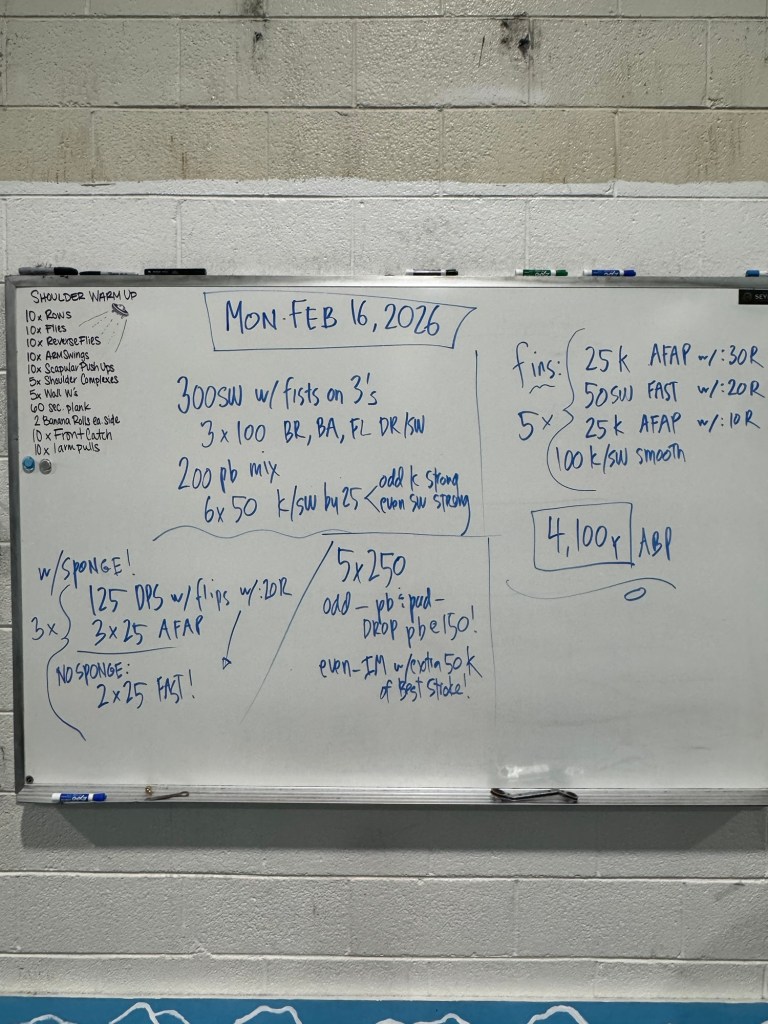 SHOULDER WARM UP
10x Rows
10x Flies
10x Reverse Flies
10x Arm Swings
10x Scapular Push Ups
5x Shoulder Complexes
5x Wall W's
60 sec. plank
2 Banana Rolls ea. side
10x Front Catch
10x 1 arm pulls
MON. FEB 16, 2026
300 SW w/ fists on 3's
3 x 100 BR, BA, FL DR/SW
200 pb mix
6x 50 k/sw by 25 < odd k strong
even sw strong
w/SPONGE!
3x
125 DPS w/ flips w/:20R
3x25 AFAP
NO SPONGE:
2x25 FAST!
5x250
odd – pb & pad –
DROP pb @ 150!
even – IM w/extra 50 k
of Best Stroke!
fins:
5x
25 k AFAP w/:30R
50 SW FAST w/:20R
25 k AFAP w/:10R
100 k/sw smooth
4,100y ABP